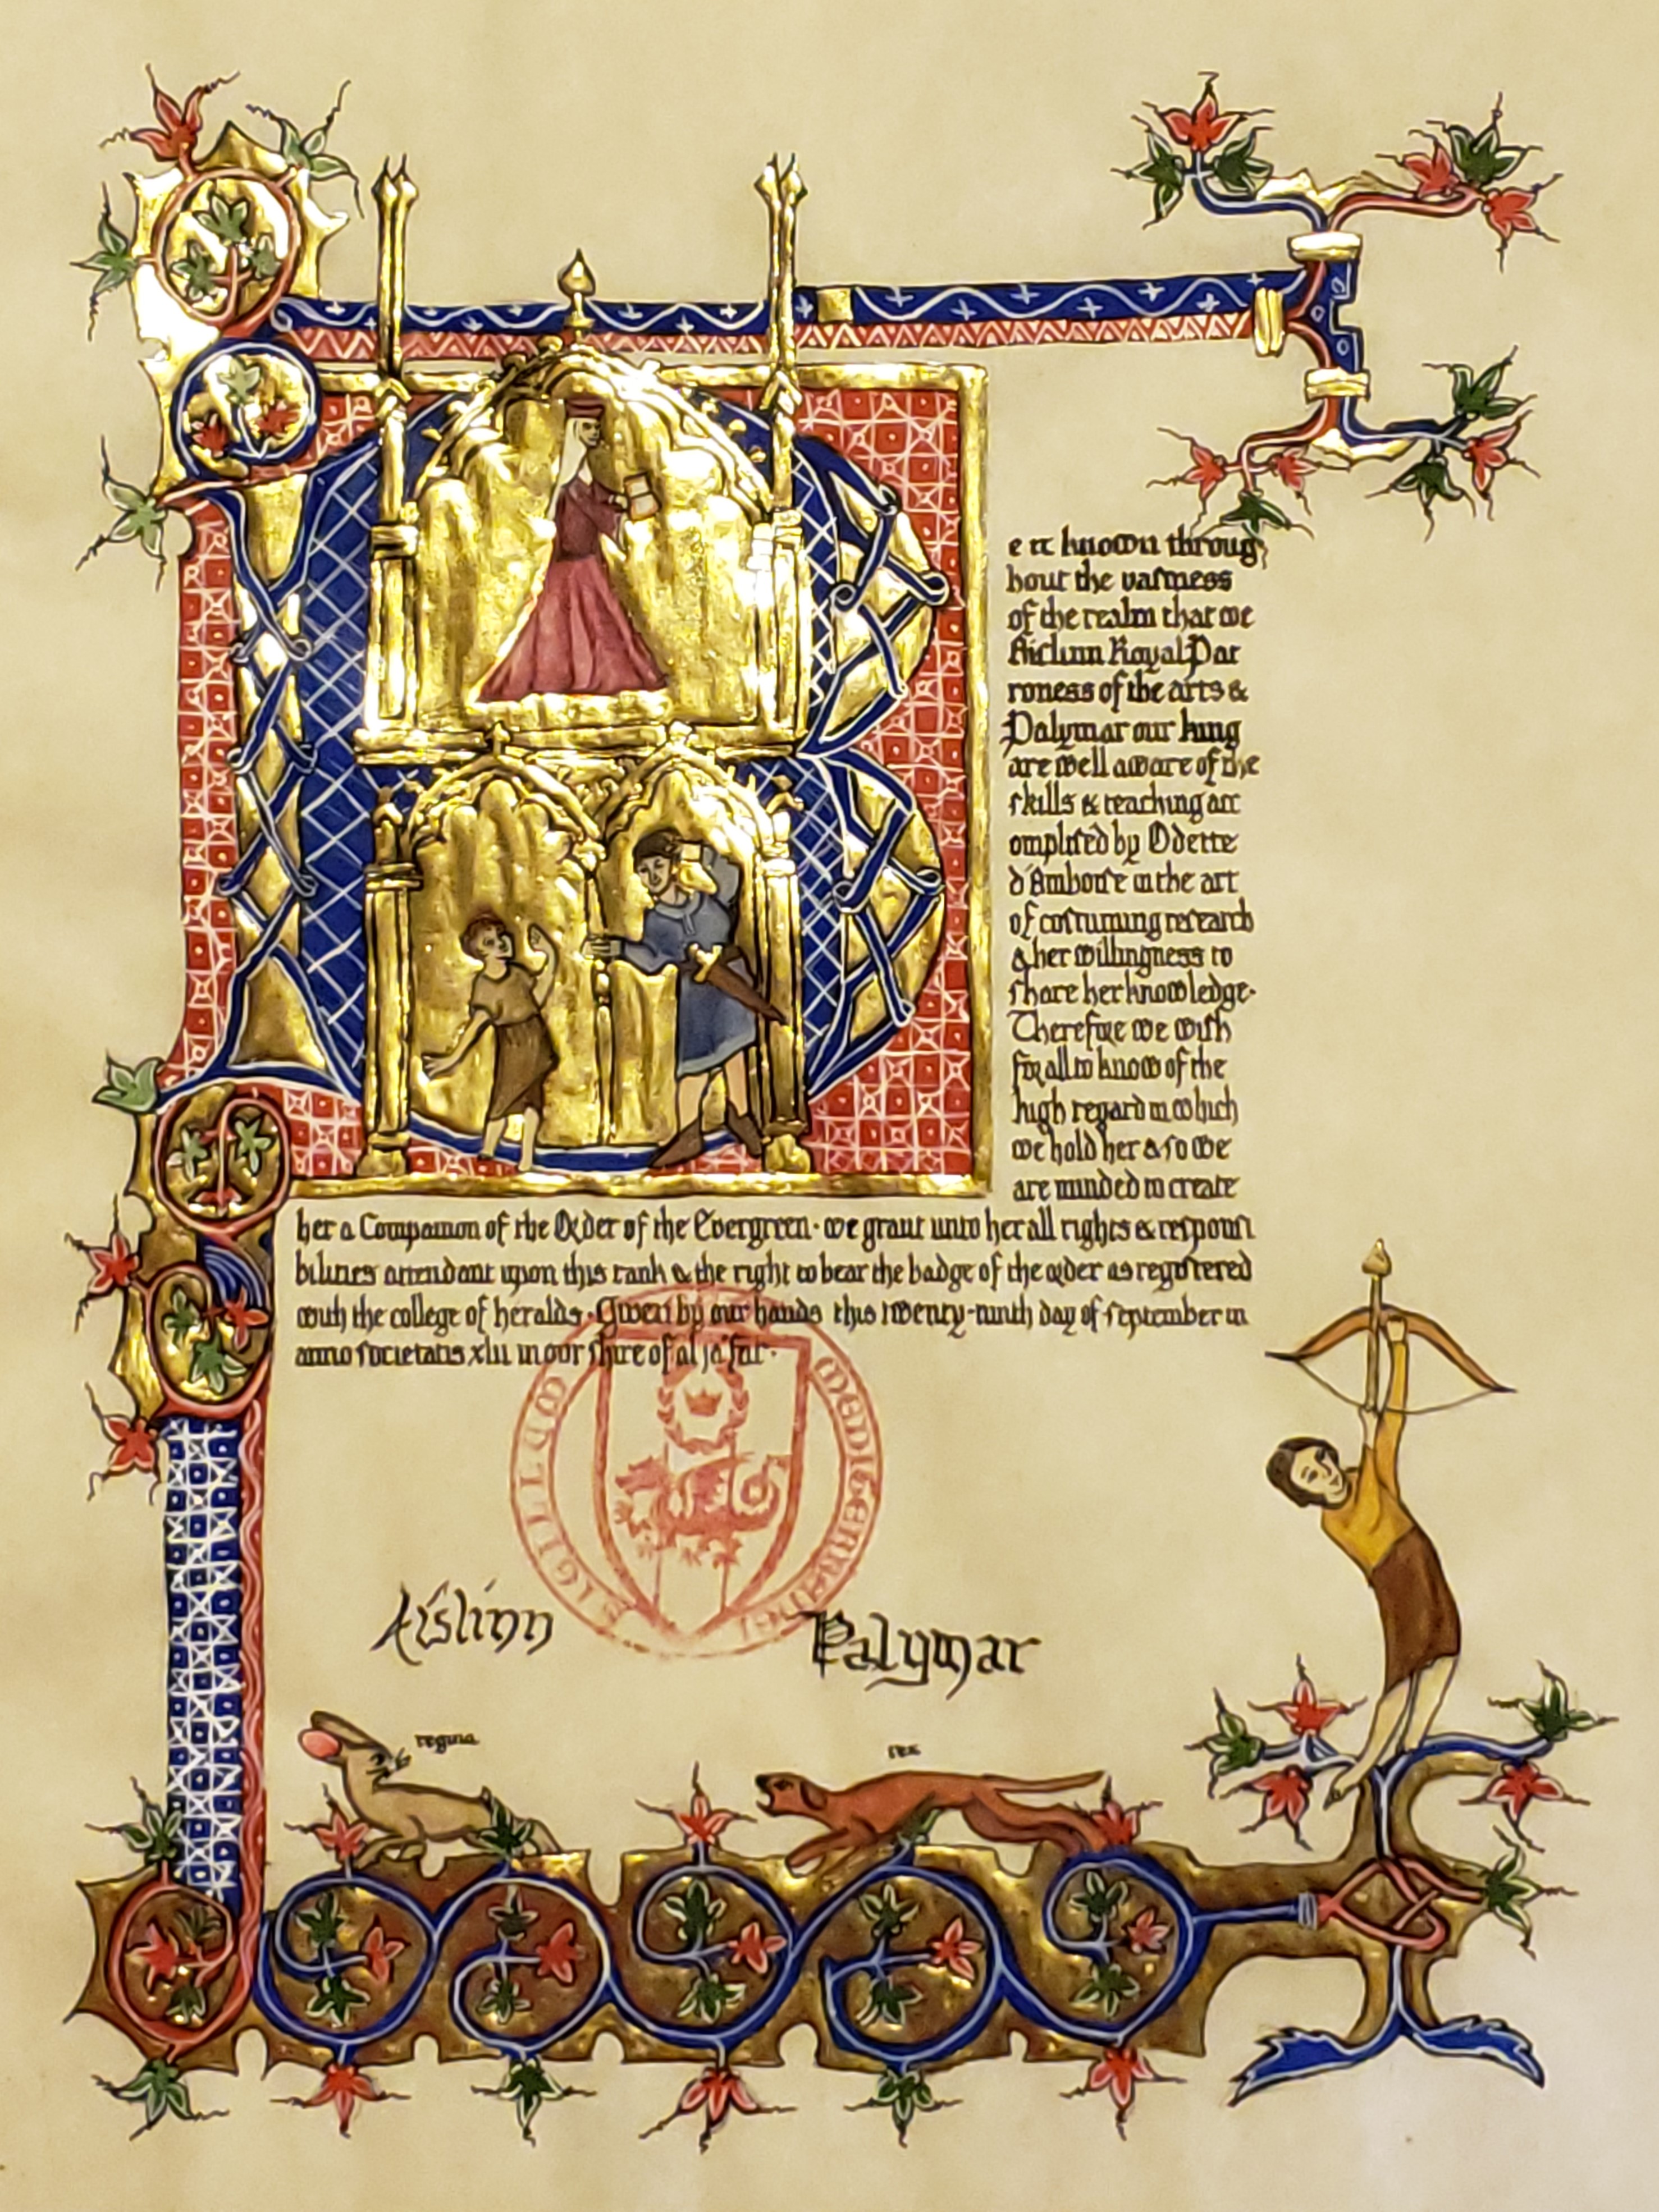 B
e it known throug
hout the vastness
of the realm that we
Aislinn Royal Pat
roness of the arts &
Palymar our king
are well aware of the
skills & teaching acc
omplised by Odette
d'Amboise in the art
of costuming research
& her willingness to
share her knowledge·
Therefore we wish
for all to know of the
high regard in which
we hold her & so we
are minded to create
her a Companion of the Order of the Evergreen· we grant unto her all rights & responsi
bilities attendant upon this rank & the right to bear the badge of the order as registered
with the college of heralds· Given by our hands this twenty-ninth day of september in
anno societatis xlii in our shire of al ja'far·
SIGILLUM MEDITERRANEI
Aíslinn Palymar
regina rex